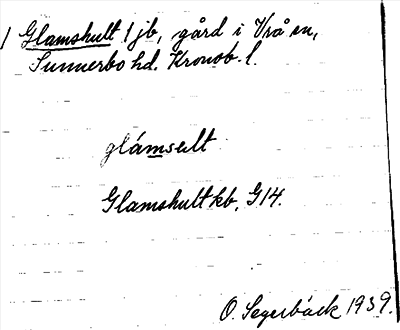 1 Glamshult 1 jb, gård i Vrå sn,
Sunnerbo hd. Kronob. l.
glámsult
Glamshult kb, G14.
O. Segerbäck 1939.